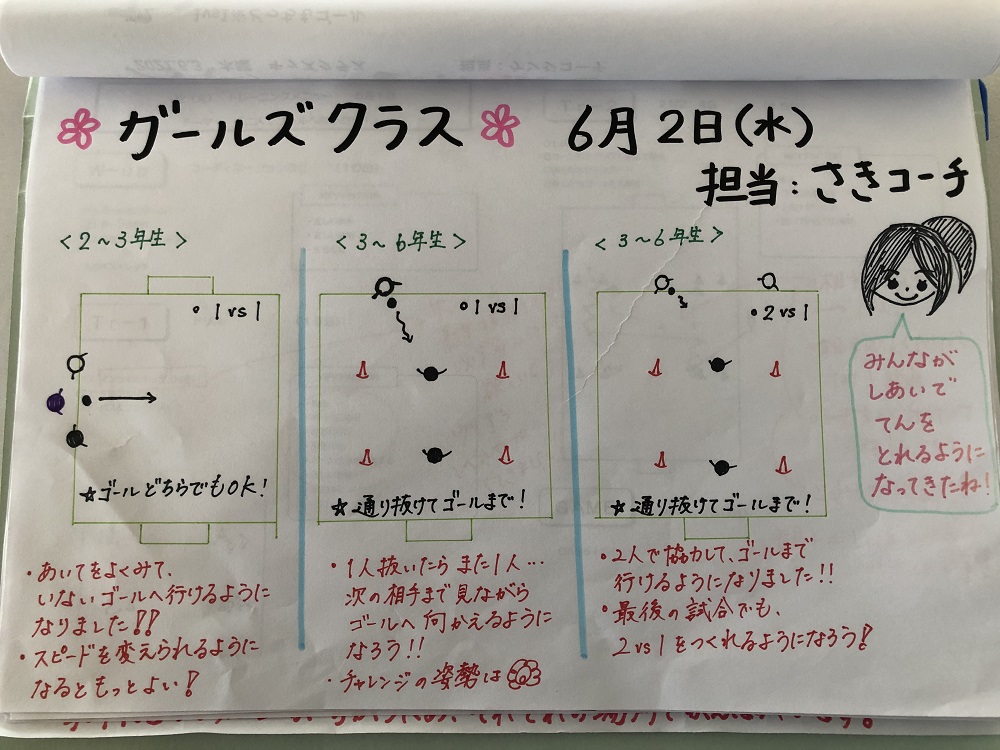 ガールズクラス 6月2日(水)
担当：さきコーチ
<2～3年生>
○ 1 vs 1
☆ゴールどちらでもOK!
・あいてをよくみて、
いないゴールへ行けるように
なりました!!
・スピードを変えられるように
なるともっとよい!
<3～6年生>
○ 1 vs 1
☆通り抜けてゴールまで!
・1人抜いたらまた1人…
次の相手まで見ながら
ゴールへ向かえるように
なろう!!
・チャレンジの姿勢は
<3～6年生>
・2 vs 1
☆通り抜けてゴールまで!
・2人で協力して、ゴールまで
行けるようになりました!!
・最後の試合でも、
2 vs 1をつくれるようになろう!
みんなが
しあいで
てんを
とれるように
なってきたね!